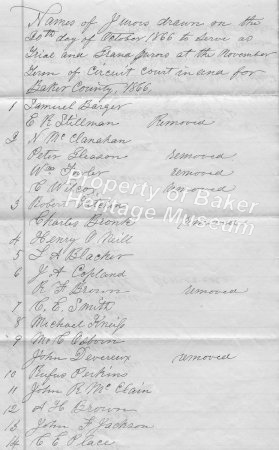 Names of Jurors drawn on the
20th day of October 1866 to serve as
Trial and Grand Jurors at the November
Term of Circuit court in and for
Baker County, 1866.
1 Samuel Barger
E. R. Stillman Removed
2 N McClanahan
Peter Gleason removed
Wm removed
C Wilson removed
3 Robert
Charles
4 Henry O Neill
5 L A Blacker
6 J. A Copland
R H Brown removed
7 C. E. Smith
8 Michael
9 Mc C Osborn
John Devereux removed
10 Rufus Perkins
11 John R McClain
12 A H Brown
13 John F Jackson
14 C E Place
Property of Baker
Heritage Museum